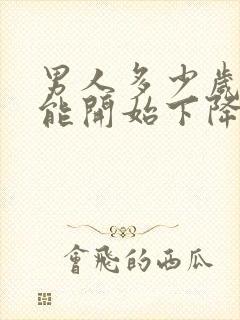 男人多少歲
能開始下降
會飛的西瓜